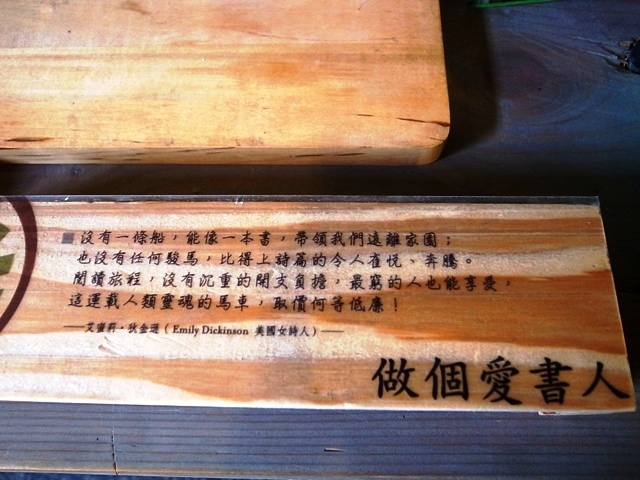 沒有一條船，能像一本書，帶領我們遠離家園；
也沒有任何駿馬，比得上詩篇的令人雀悅、奔騰。
閱讀旅程，沒有沉重的開支負擔，最窮的人也能享受，
這運載人類靈魂的馬車，取價何等低廉！
——艾蜜莉·狄金遜（Emily Dickinson 美國女詩人）——
做個愛書人